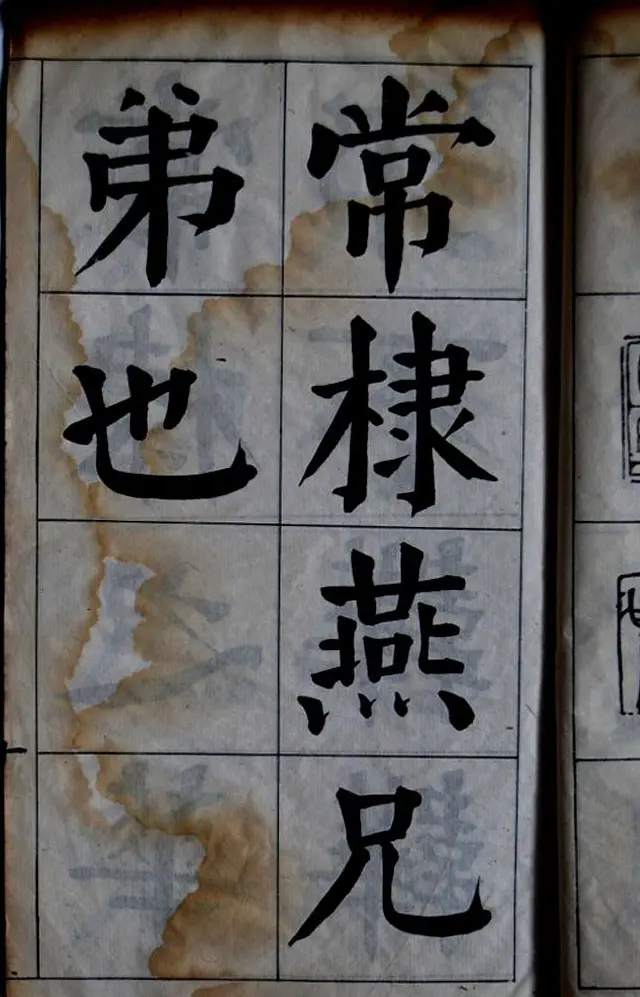 常棣燕兄
弟也